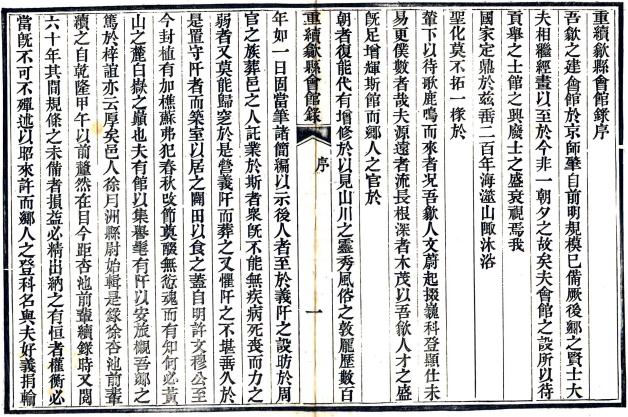 重續歙縣會館錄序
吾歙之建會館於京師肇自前明規模已備厥後鄉之賢士大
夫相繼經畫以至於今非一朝夕之故矣夫會館之設所以待
貢舉之士館之興廢士之盛衰視焉我
國家定鼎於茲垂二百年海澨山陬沐浴
聖化莫不拓一樣於
輦下以待歌鹿鳴而來者況吾歙人文蔚起掇巍科登顯仕未
易更僕數者哉夫源遠者流長根深者木茂以吾歙人才之盛
既足增輝斯館而鄉人之官於
朝者復能代有增修於以見山川之靈秀風俗之敦龐歷數百
重續歙縣會館錄
序
一
年如一日固當筆諸簡編以示後人者至於義阡之設昉於周
官之族葬邑之人託業於斯者衆既不能無疾病死喪而力之
弱者又莫能歸窆於是營義阡而葬之又懼阡之不堪善久於
是置守阡者而築室以居之闢田以食之蓋自明許文穆公至
今封植有加樵蘇弗犯春秋改節奠醊無愆魂而有知何必黃
山之麓白嶽之巔也夫有館以集舉舉有阡以安旅櫬吾鄉之
篤於梓誼亦云厚矣邑人徐月洲縣尉始輯是錄徐杏池前輩
續之自乾隆甲午以前釐然在目今距杏池前輩續錄時又閱
六十年其間規條之未備者損益必精出納之有恒者權衡必
當既不可不殫述以昭來許而鄉人之登科名與夫好義捐輸